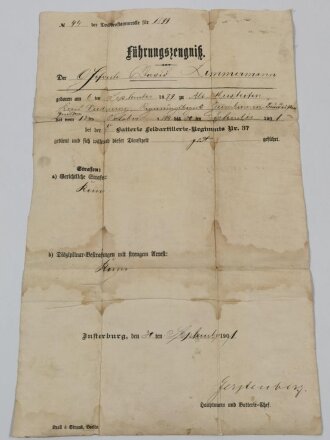 № 44 der Truppenstammrolle für 1899
Führungszeugniß.
Der Gefreite David Zimmermann
geboren am 6 ten September 1879 zu Alt
Kreis Regierungsbezirk Gumbinnen
hat vom ten Oktober bis ten September 1901
bei der Batterie Feldartillerie-Regiments Nr. 37
gedient und sich während dieser Dienstzeit gut geführt.
Strafen:
a) Gerichtliche Strafen:
Keine
b) Disziplinar-Bestrafungen mit strengem Arrest:
Keine
Insterburg, den ten September 1901
Gerstenberg.
Hauptmann und Batterie-Chef.